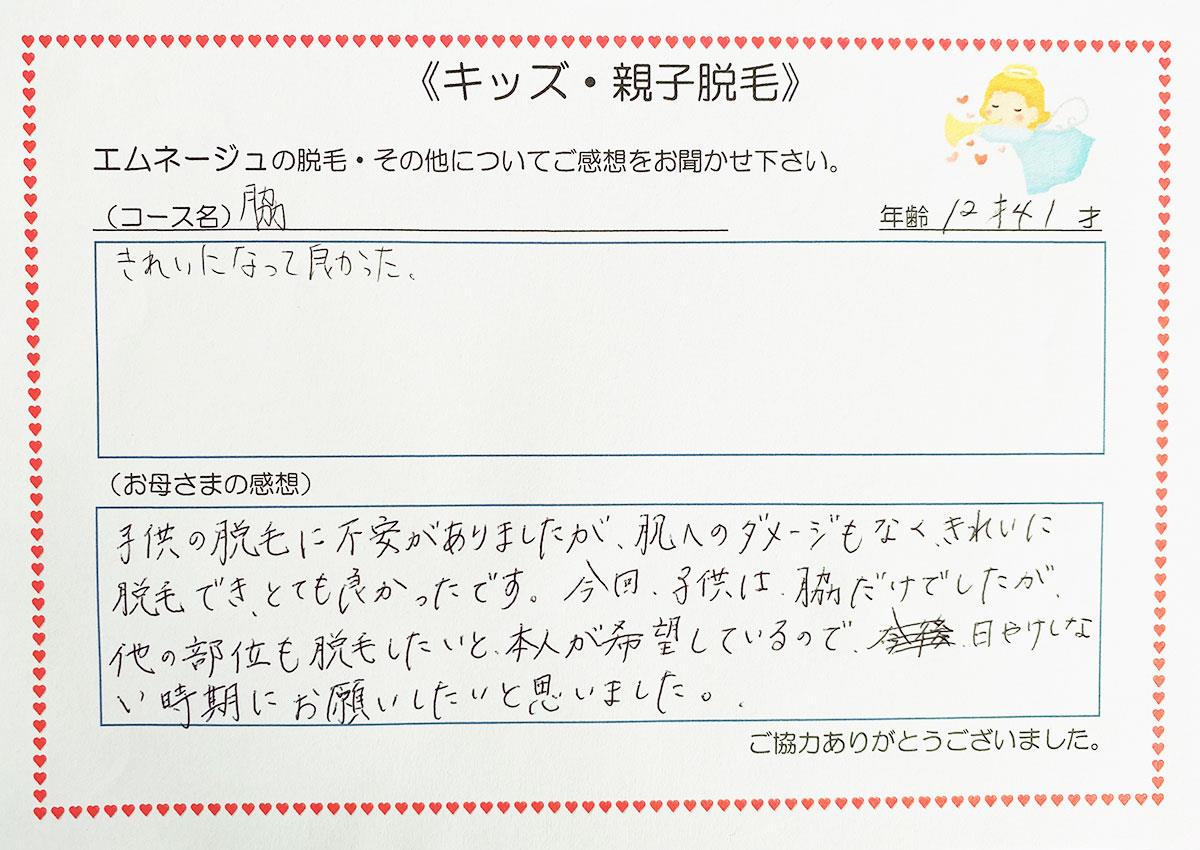 《キッズ・親子脱毛》
エムネージュの脱毛・その他についてご感想をお聞かせ下さい。
（コース名）脇 年齢 12才41 才
きれいになって良かった。
（お母さまの感想）
子供の脱毛に不安がありましたが、肌へのダメージもなく、きれいに
脱毛でき、とても良かったです。今回、子供は、脇だけでしたが、
他の部位も脱毛したいと、本人が希望しているので、日やけしな
い時期にお願いしたいと思いました。
ご協力ありがとうございました。